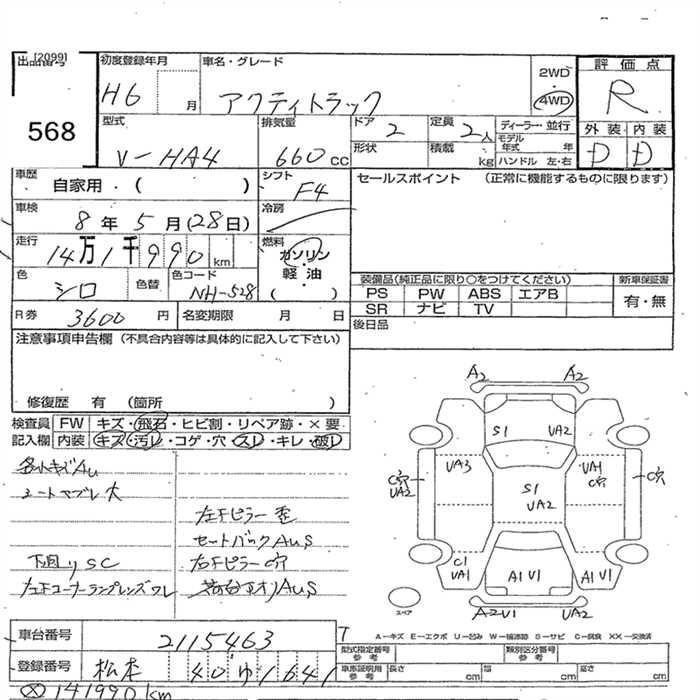 [2099]
出品番号 568
初度登録年月 H6 月
車名・グレード アクティトラック
2WD
4WD
評価点 R
外装 内装
D D
型式 V-HA4
排気量 660 CC
ドア 2
定員 2人
形状
積載 kg
ディーラー・並行
モデル年式 年
ハンドル 左・右
車歴 自家用・( )
シフト F4
セールスポイント (正常に機能するものに限ります)
車検 8年5月(28日)
冷房
走行 14万1千990km
燃料 ガソリン・軽油 ( )
色 シロ
色替
色コード NH-528
装備品(純正品に限り○をつけてください)
PS PW ABS エアB
SR ナビ TV
新車保証書 有・無
R券 3600円
名変期限 月 日
後日品
注意事項申告欄 (不具合内容等は具体的に記入して下さい)
修復歴 有 (箇所 )
検査員記入欄
FW キズ・飛石・ヒビ割・リペア跡・×要
内装 キズ・汚レ・コゲ・穴・スレ・キレ・破レ
各小キズAu
シートヤブレ大
左Fピラー歪
セートバックAuS
下回りSC
右Fピラー穴
左Fコーナーランプレンズワレ
荷台アオリAuS
A2 A2
S1 UA2
UA3 UA1
C穴
C穴 UA2
C穴
S1
UA2
C1
UA1
A1V1
A1V1
A2V1 UA2
スペア
A-キズ E-エクボ U-凹み W-補修跡 S-サビ C-腐食 XX-交換済
車台番号 2115463
登録番号 松本 40 ゆ 1641
型式指定番号 参考
類別区分番号 参考
車庫証明用 参考
長さ cm 幅 cm 高さ cm
141990km